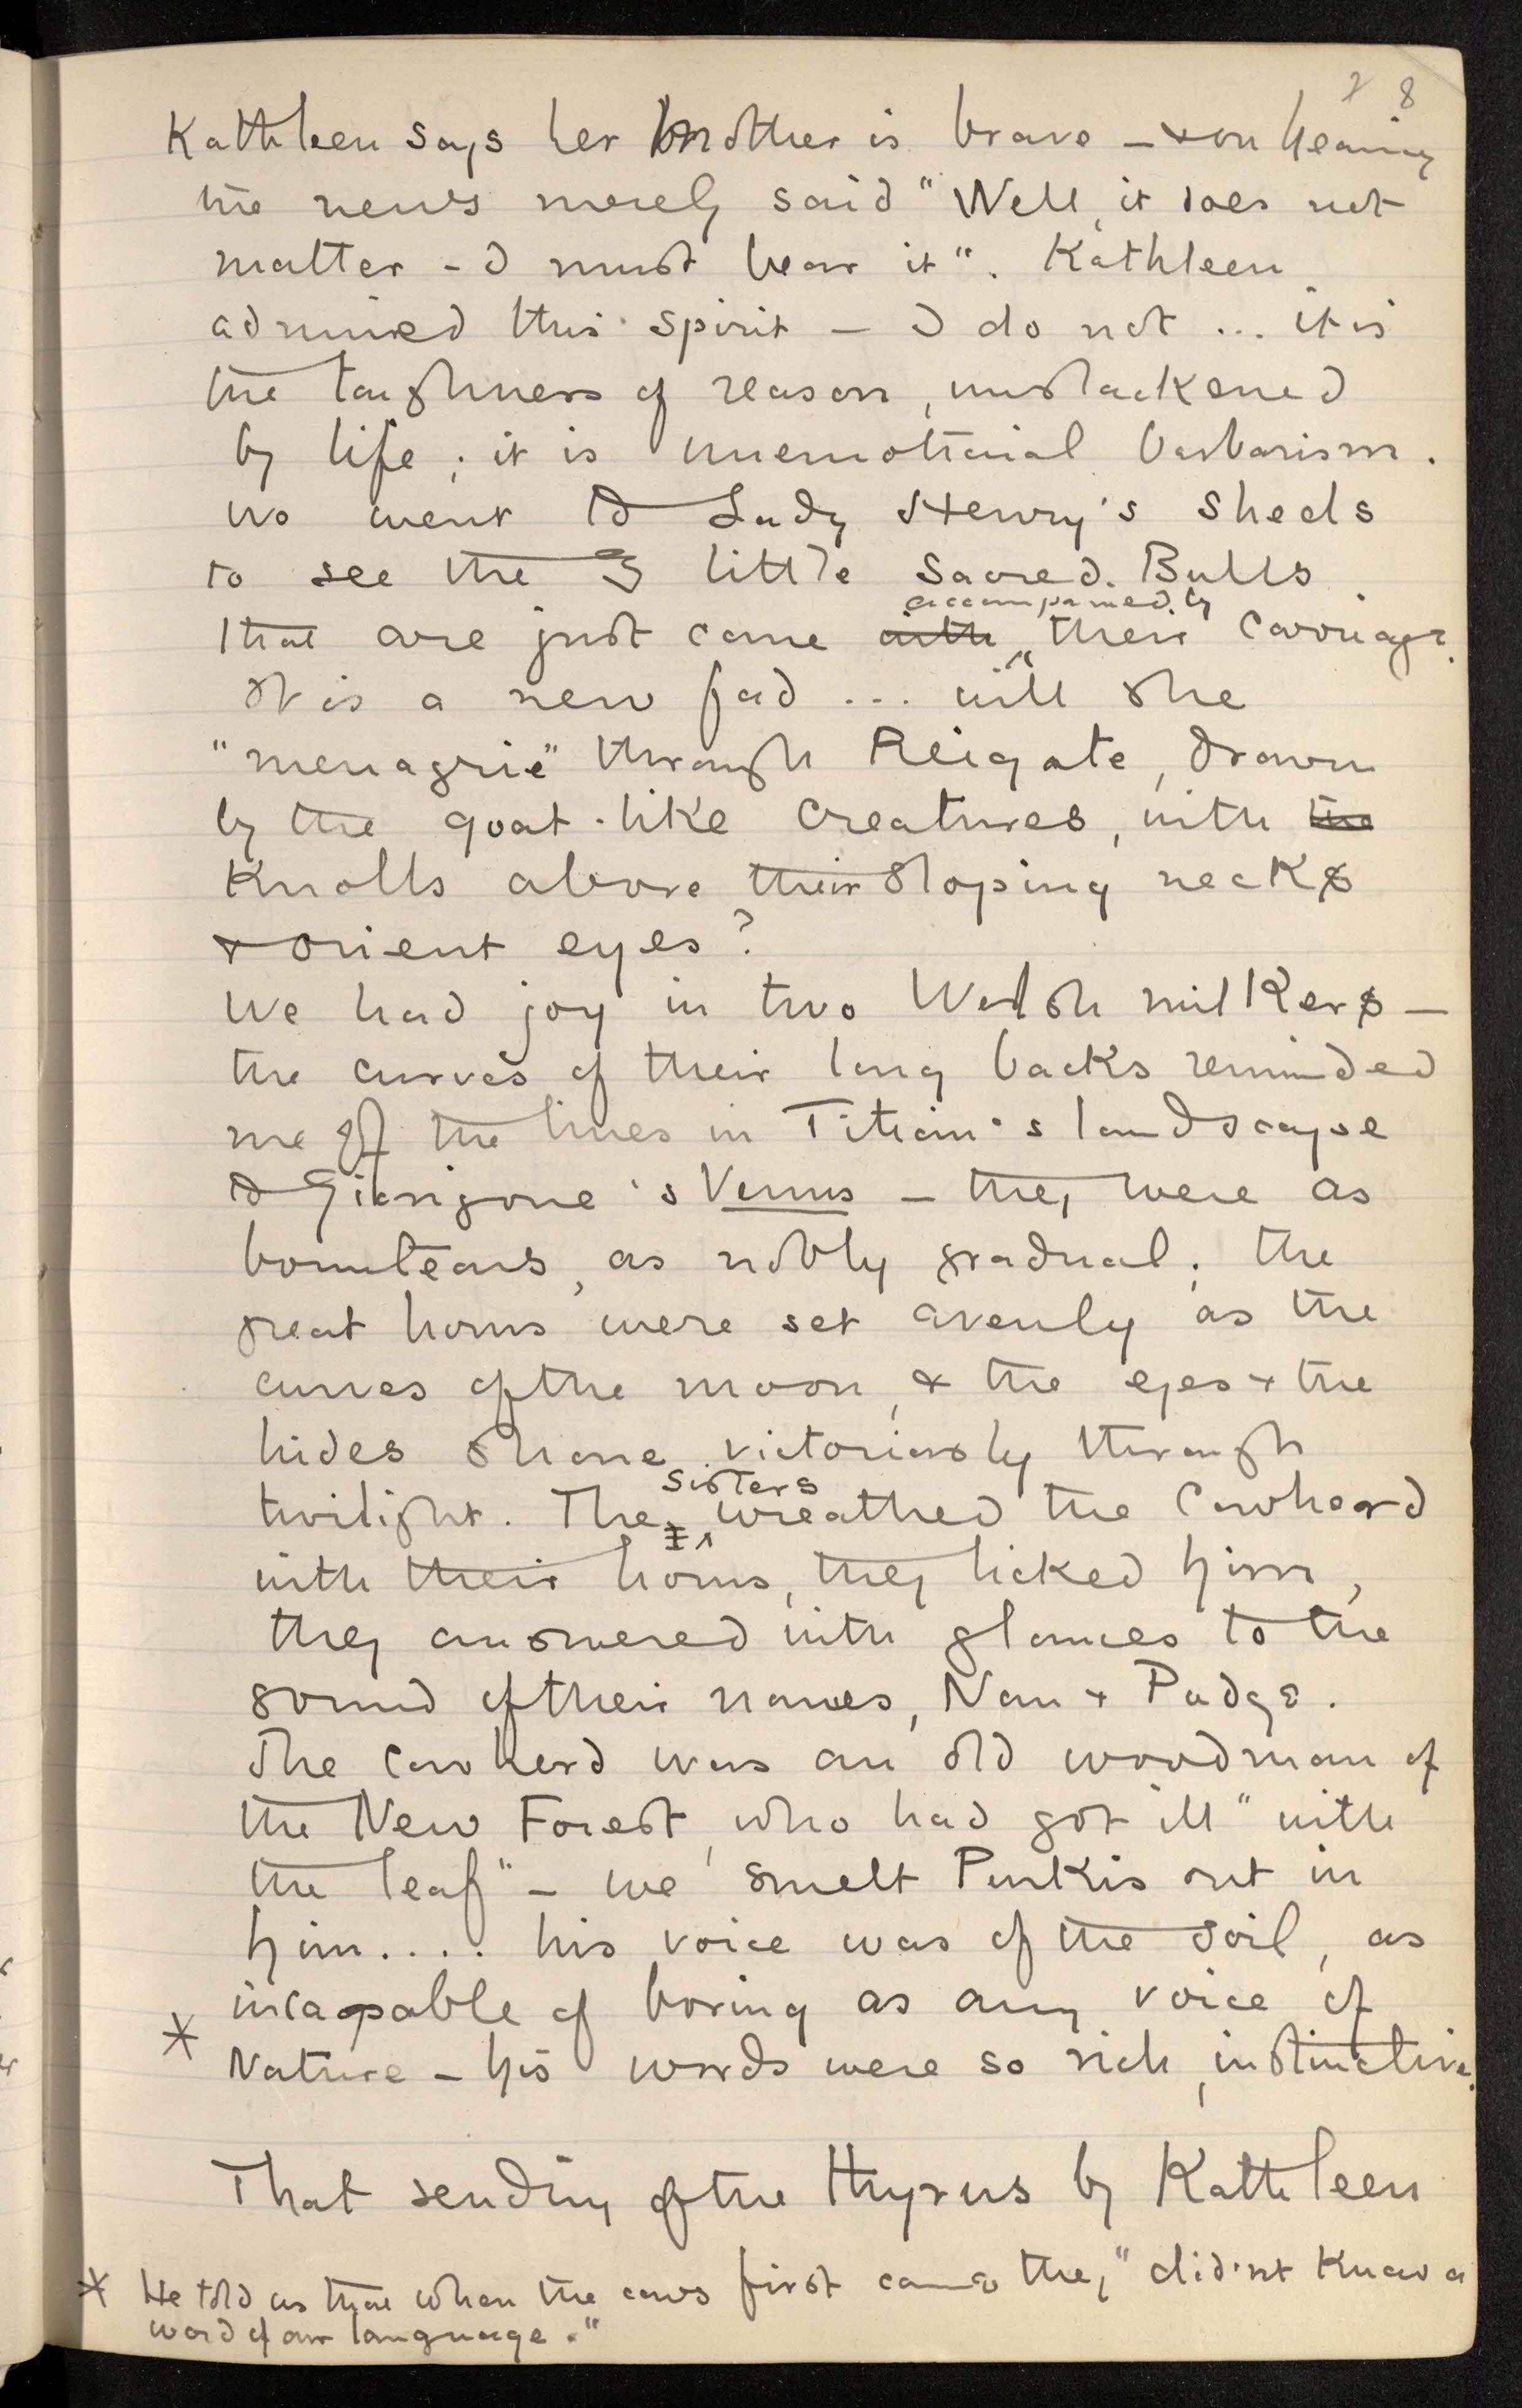 8
Kathleen says her mother is brave – & on hearing
the news merely said "Well, it does not
matter – I must bear it". Kathleen
admired this spirit – I do not ... it is
the toughness of reason, unslackened
by life; it is unemotional barbarism.
We went to Lady Henry's sheds
to see the 3 little Sacred Bulls
accompanied by
that are just come with their carriage.
It is a new fad ... will she
"menagrie" through Reigate, drawn
by the goat-like creatures, with the
Knolls above their sloping necks
& orient eyes?
We had joy in two Welsh milkers –
the curves of their long backs reminded
me of the lines in Titian's landscape
to Giorgione's Venus – they were as
bounteous, as nobly gradual; the
great horns were set evenly as the
curves of the moon, & the eyes & the
hides shone victoriously through
sisters
twilight. The wreathed the Cowheard
with their horns, they licked him,
they answered with glances to the
sound of their names, Nan & Padge.
The Cowherd was an old woodman of
the New Forest, who had got ill "with
the leaf" – we smelt Purkis out in
him.... his voice was of the soil, as
incapable of boring as any voice of
* Nature – his words were so rich, instinctive.
That sending of the Thyrsus by Kathleen
* He told us that when the cows first came they "did'nt Know a
word of our language."